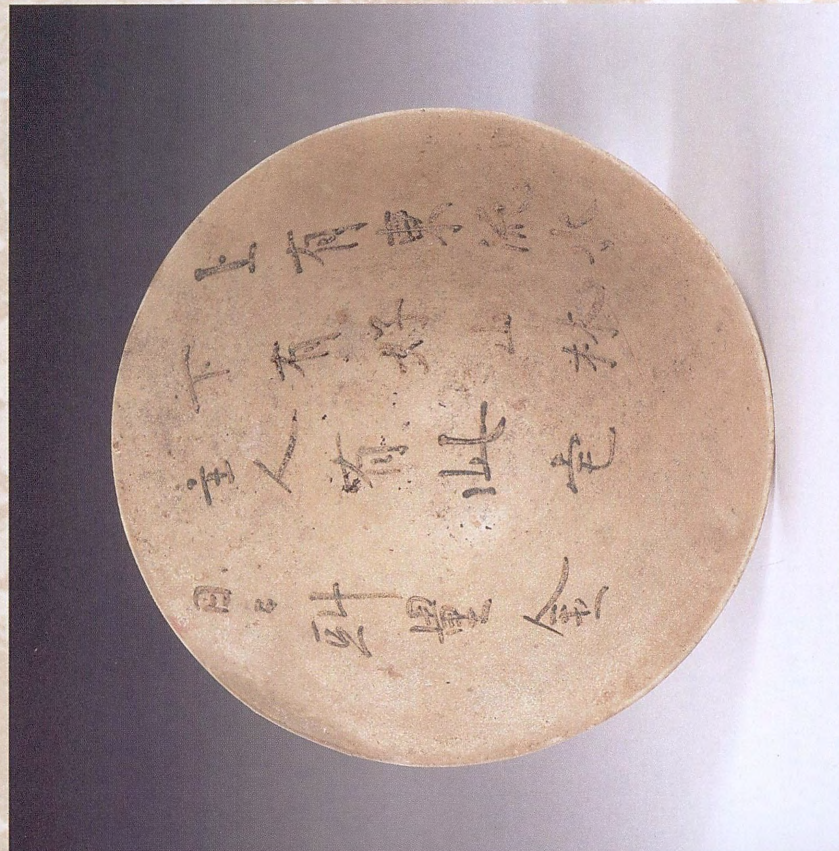 上有東流水
下有好山林
主人居此宅
日々斗量金